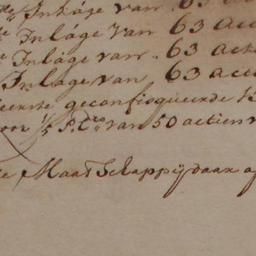 de Inlage van 63 a
de Inlage van 63 acti
e Inlage van 63 acti
Inlage van 63 acti
eerste geconfisqueerde 1
oor 1/5 P. Cto van 50 actien
e Maatschappij daar a